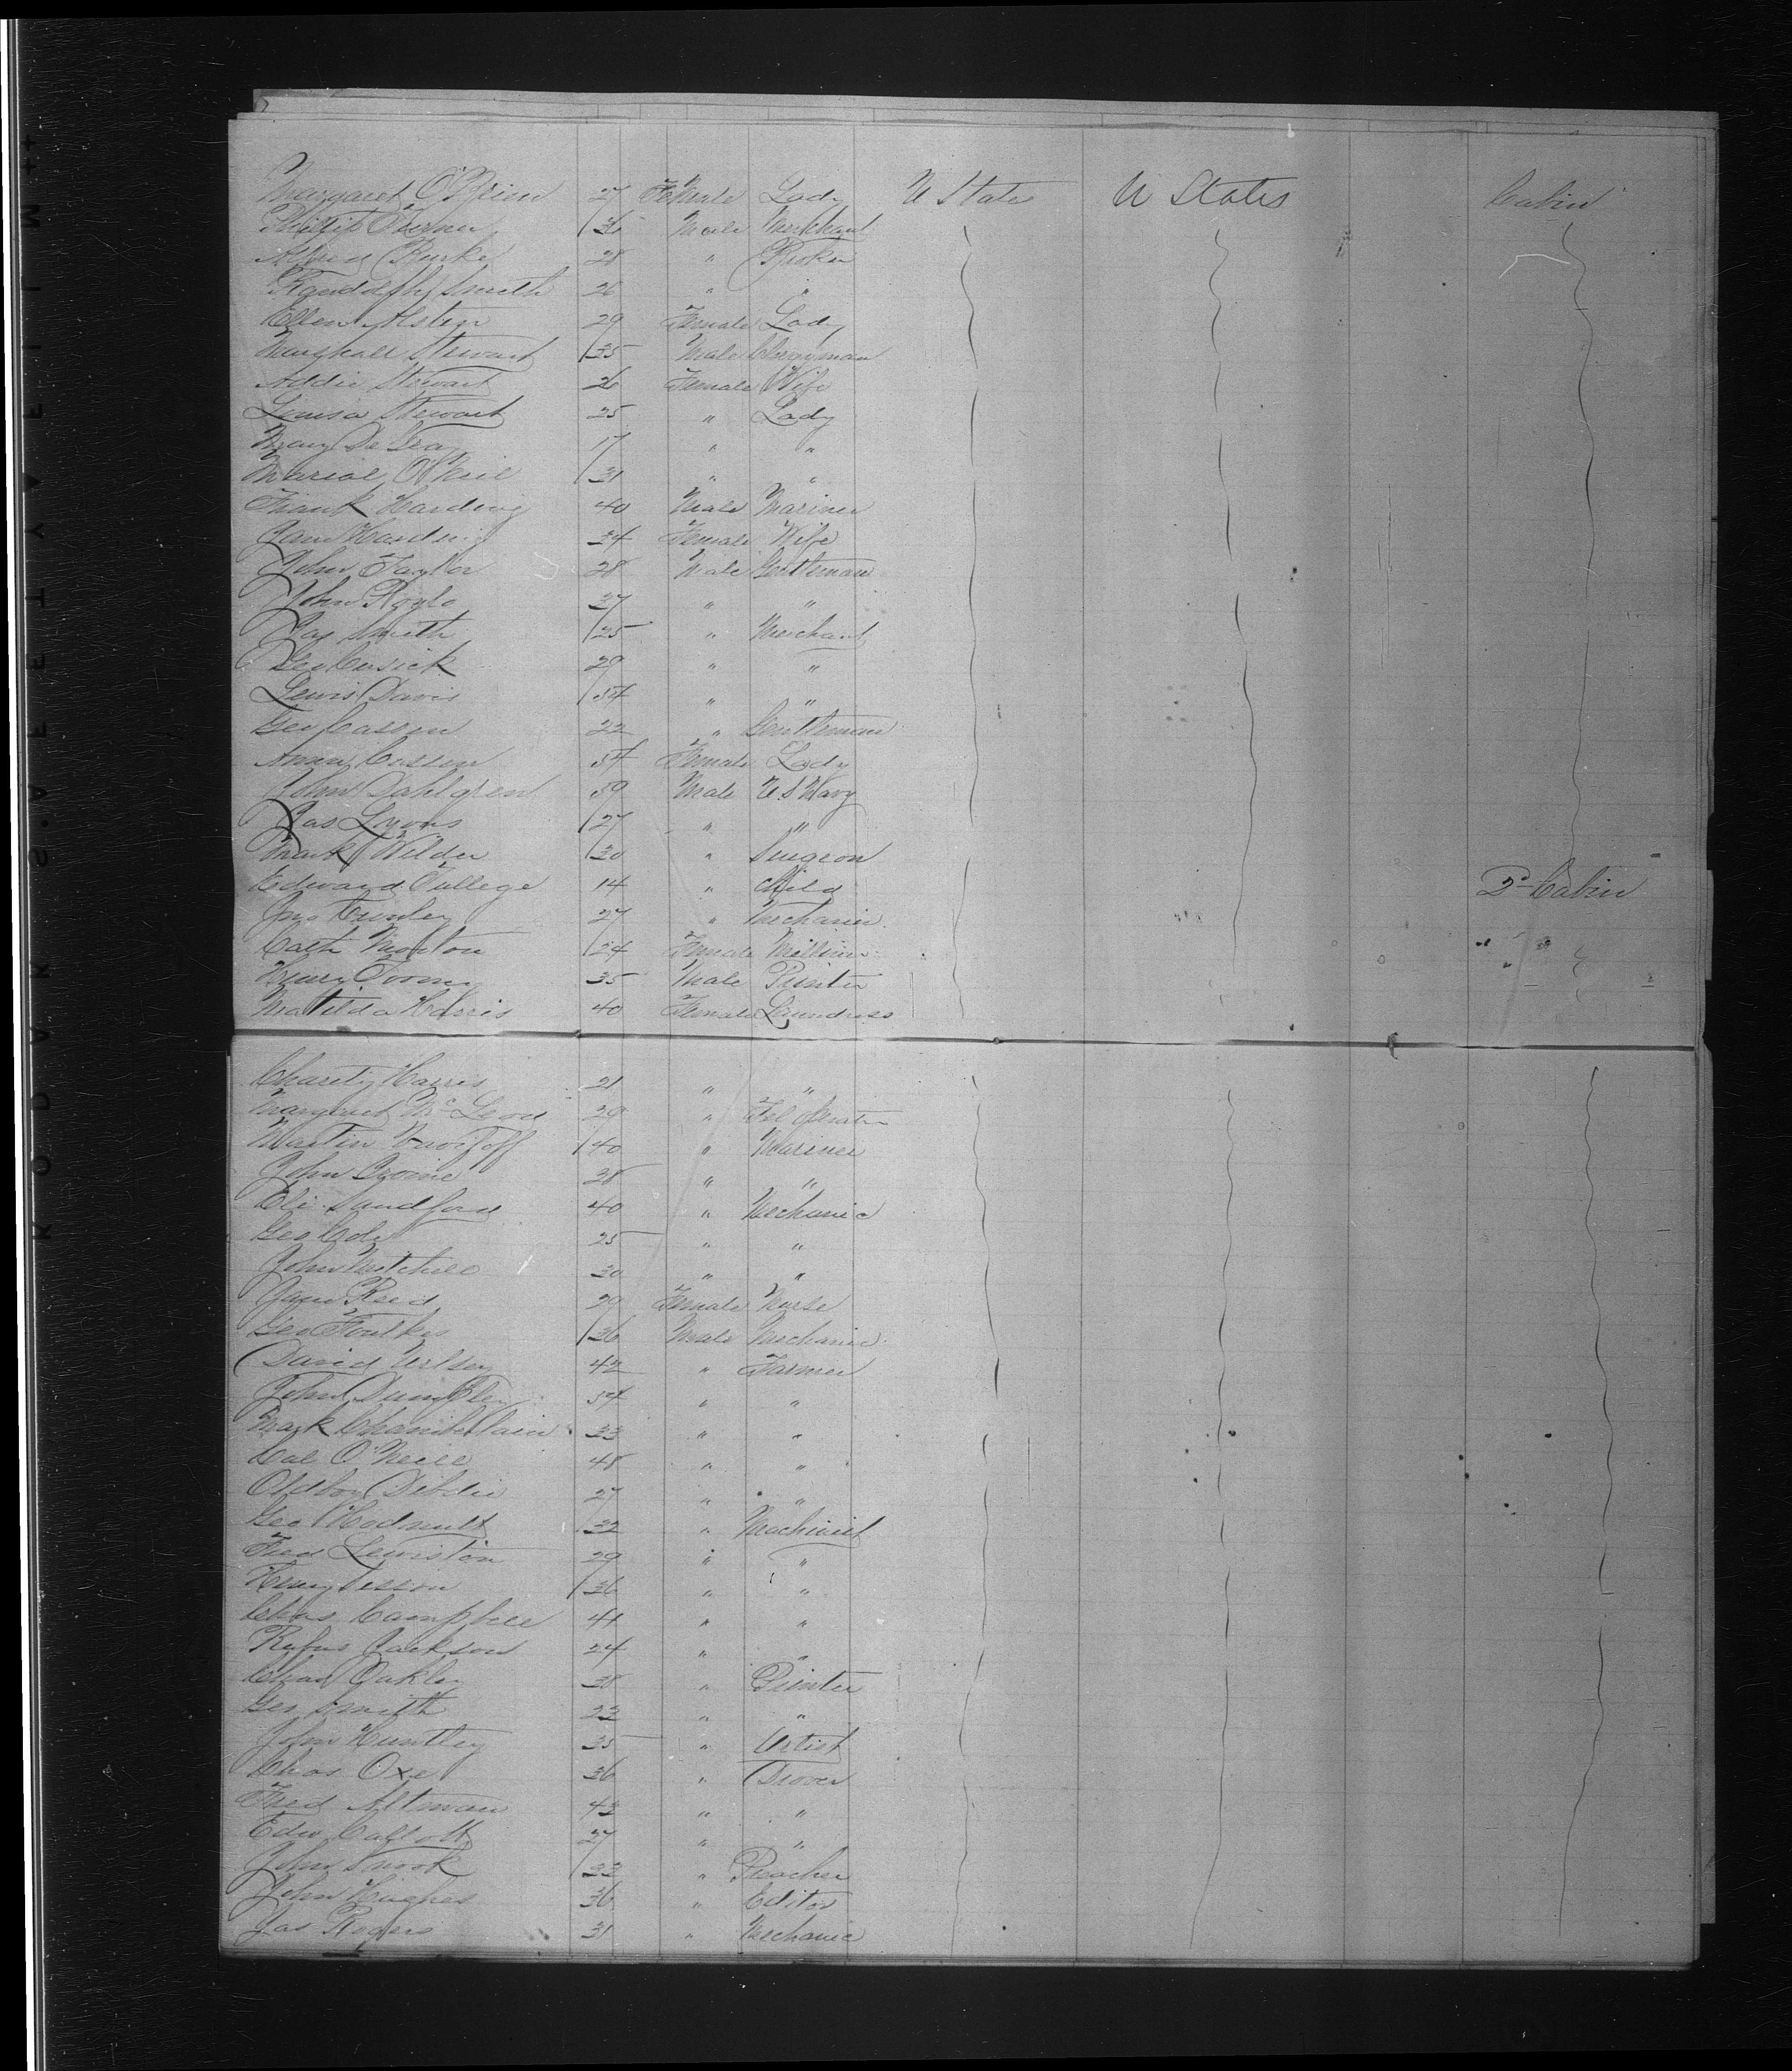 Margaret O'Brien 27 Female Lady U State U States Cabin
Turner 36 Male Merchant
Burke 28 " Broker
Randolph Smith 26 " "
Ellen Alsten 29 Female Lady
Marshall Stewart 35 Male Clergyman
Addie Stewart 26 Female Wife
Louisa Stewart 25 " Lady
Mary De 17 " "
O'Neil 31 " "
Frank Harding 40 Male Mariner
Jane Harding 34 Female Wife
John Taylor 28 Male Gentleman
John 37 " "
Jas Smith 25 " Merchant
Geo Cusick 29 " "
Lewis Davis 34 " "
Geo Cassen 22 " Gentleman
Anna Cassen 34 Female Lady
John Dahlgren 59 Male U.S Navy
Jas Lyons 27 " "
Mark Wilder 30 " Surgeon
Edward Tullege 14 " Child 2d Cabin
Jno 27 " Mechanic
Cath Morton 24 Female Milliner " "
Henry 35 Male Printer "
Matilda Harris 40 Female Laundress
Charity Harris 21 " "
Margaret McLeod 29 " Tel Operator
Martin 40 " Mariner
John 38 " "
Eli Sandford 40 " Mechanic
Geo Cole 25 " "
John Mitchell 30 " "
Jane Reid 29 Female Nurse
Geo Foulkes 36 Male Mechanic
David 42 " Farmer
John 34 " "
Mark Chamberlain 33 " "
Cal O'Neill 48 " "
Diblee 27 " "
Geo Hadnutt 32 " Machinist
Fred Lewiston 29 " "
Henry 36 " "
Chas Campbell 41 " "
Rufus Jackson 24 " "
Chas Oakley 38 " Printer
Geo Smith 22 " "
John Huntley 35 " Artist
Chas Oxe 36 " Drover
Fred Altman 43 " "
Edw 27 " "
John Snook 33 " Teacher
John Hughes 36 " Editor
Jas Rogers 31 " Mechanic